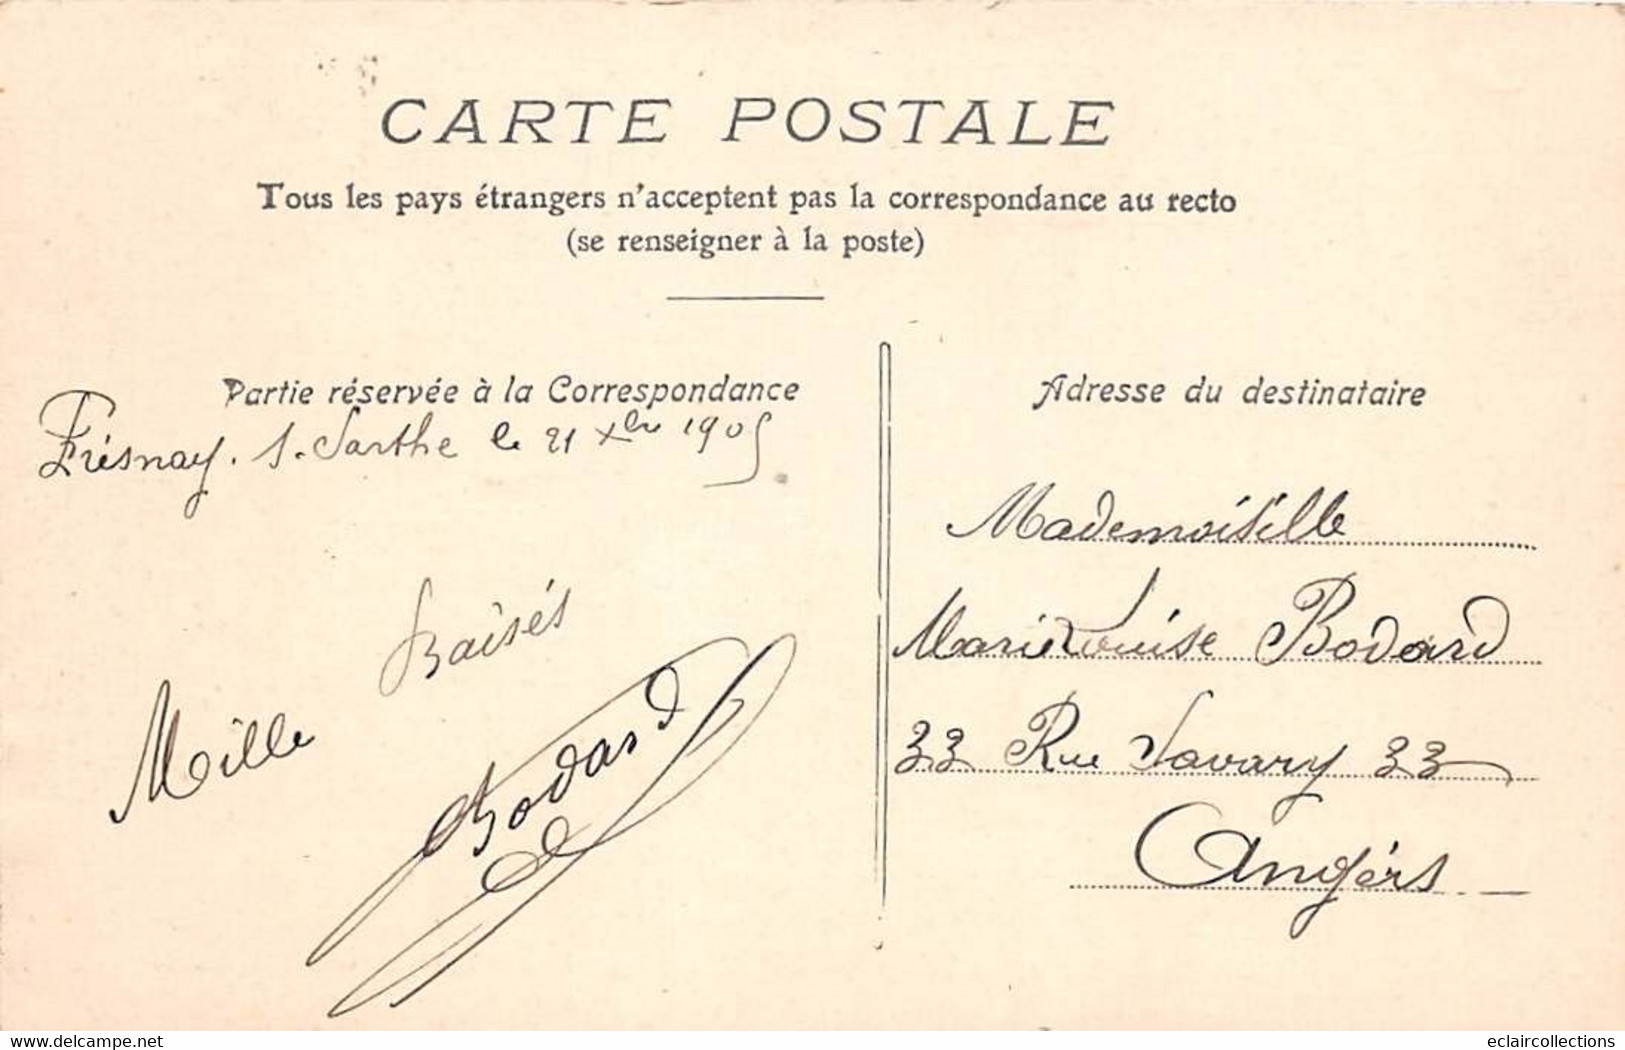 CARTE POSTALE
Tous les pays étrangers n'acceptent pas la correspondance au recto
(se renseigner à la poste)
Partie réservée à la Correspondance
Frésnay. s. Sarthe le 21 Xbre 1905
Mille Baîsés
Bodard
Adresse du destinataire
Mademoisélle
Marie Louise Bodard
33 Rue Savary 33
Angérs
www.delcampe.net
eclaircollections